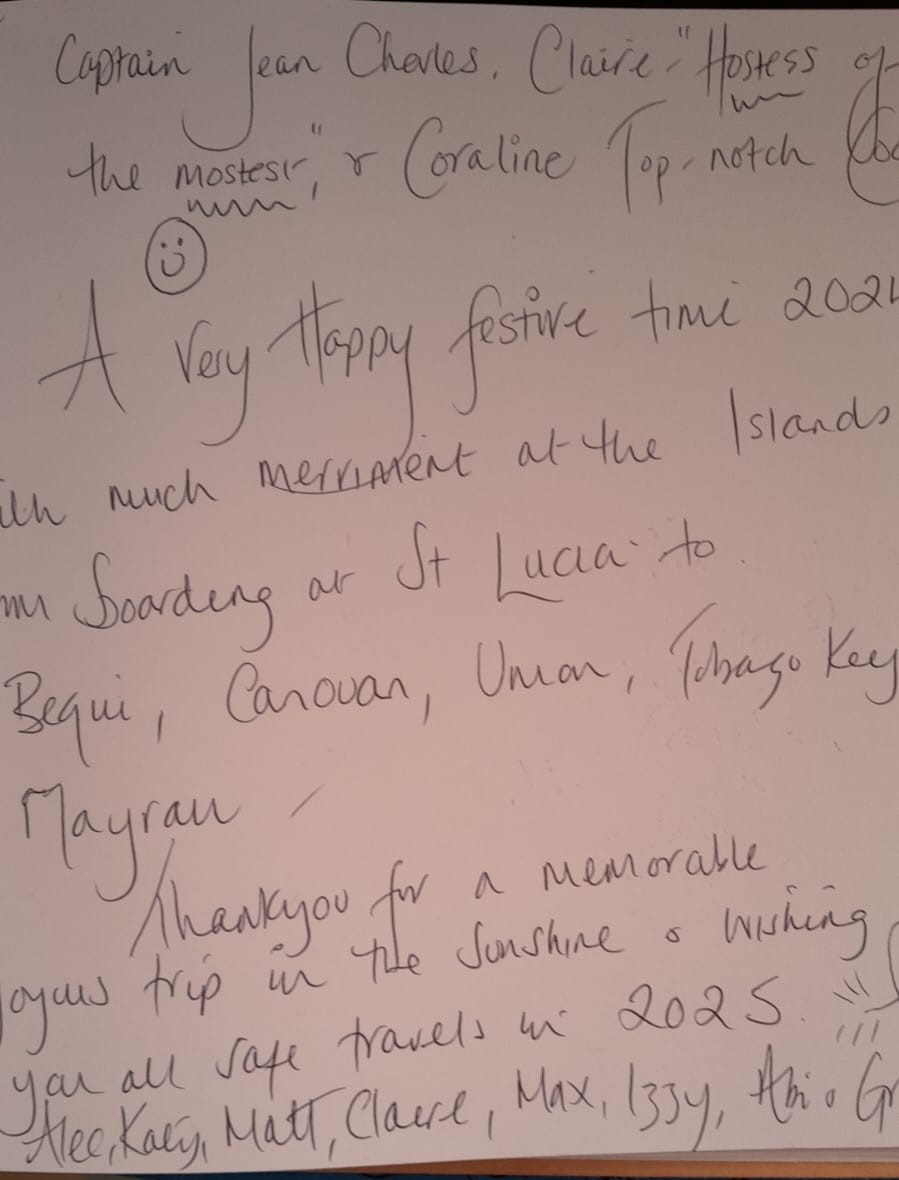 Captain Jean Charles, Claire "Hostess of
the mostest", & Coraline Top-notch
A Very Happy festive time 2024
with much merriment at the Islands
Boarding at St Lucia to
Bequi, Canouan, Union, Tobago Key
Mayrau
Thankyou for a memorable
joyous trip in the Sunshine & wishing
you all safe travels in 2025.
Alec, Kaey, Matt, Claire, Max, Izzy, Abi &